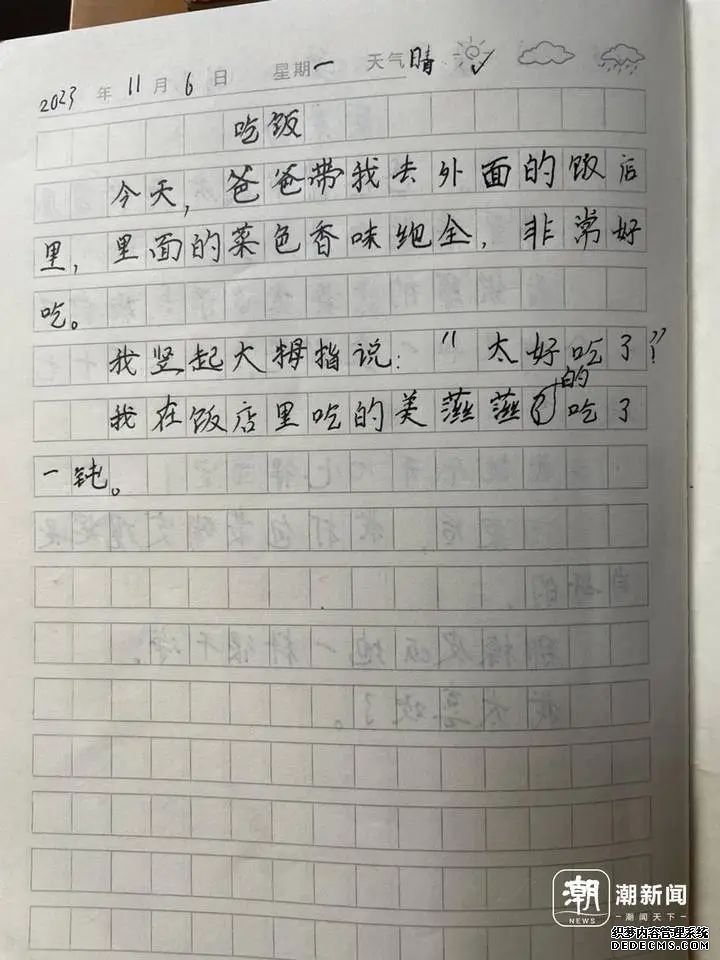 2023 年 11 月 6 日 星期一 天气晴
吃饭
今天，爸爸带我去外面的饭后
里，里面的菜色香味绝全，非常好
吃。
我竖起大拇指说：“太好吃了”！
的
我在饭店里吃的美燕燕吃了
一钝。
潮 潮新闻
NEWS 潮闻天下
织梦内容管理系统
DEDECMS.COM